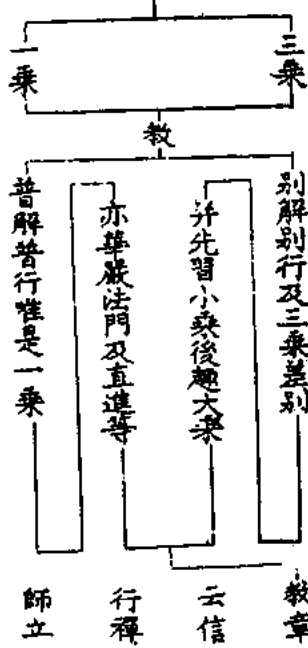 三乘
一乘
教
別解別行及三乘差別
并先習小乘後趣大乘
亦華嚴法門及直進等
普解普行唯是一乘
教章
云信
行禪
師立